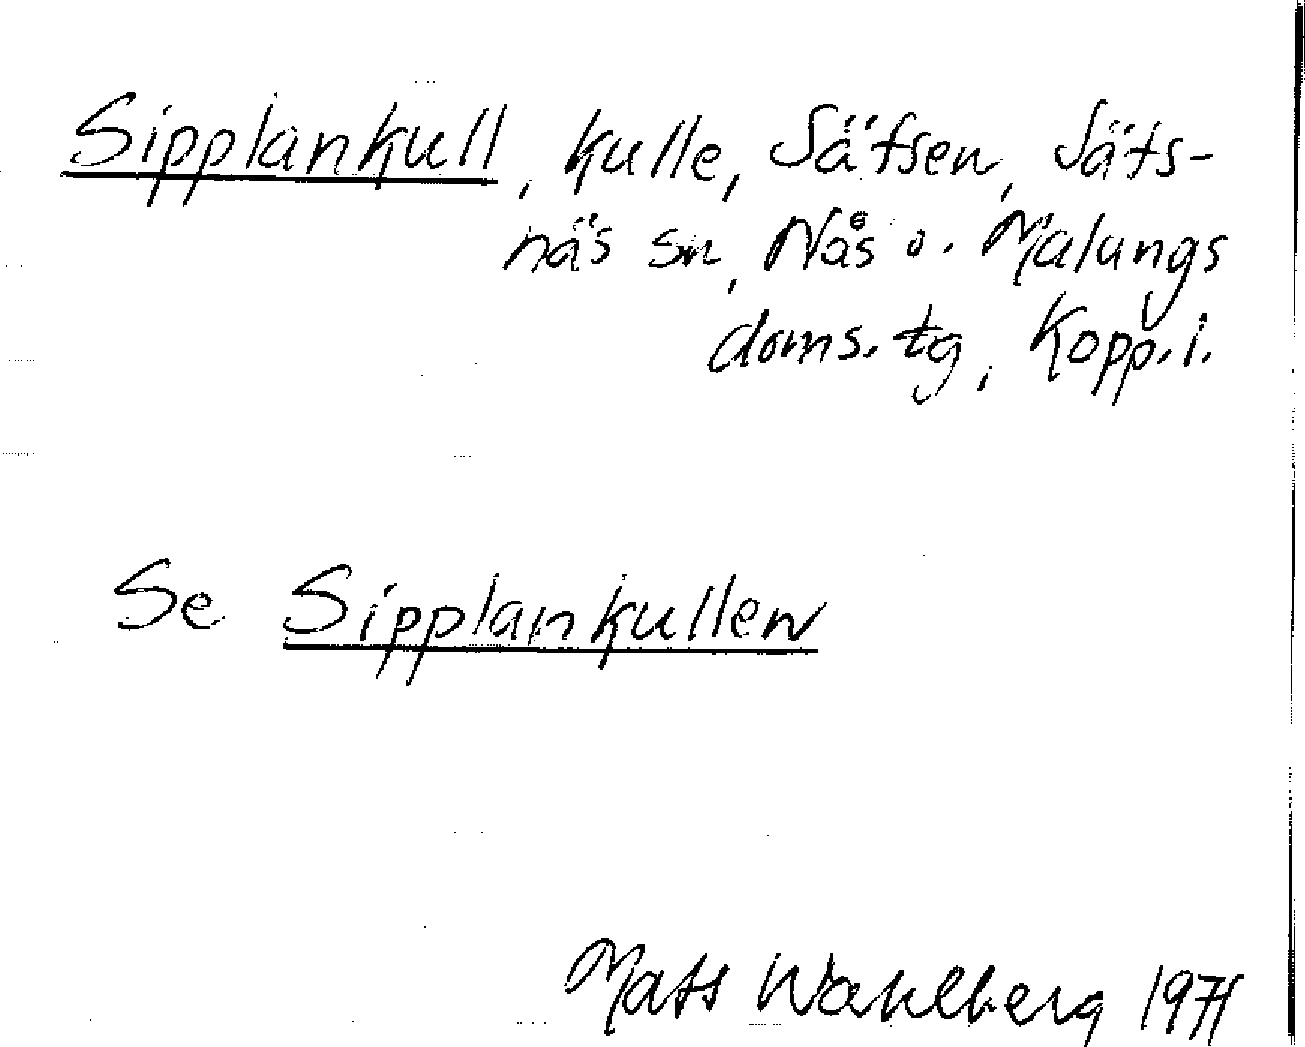 Sipplankull, kulle, Säfsen, Säfs-
näs sn, Nås o. Malungs
doms. tg, Kopp. l.
Se Sipplankullen
Mats Wahlberg 1971